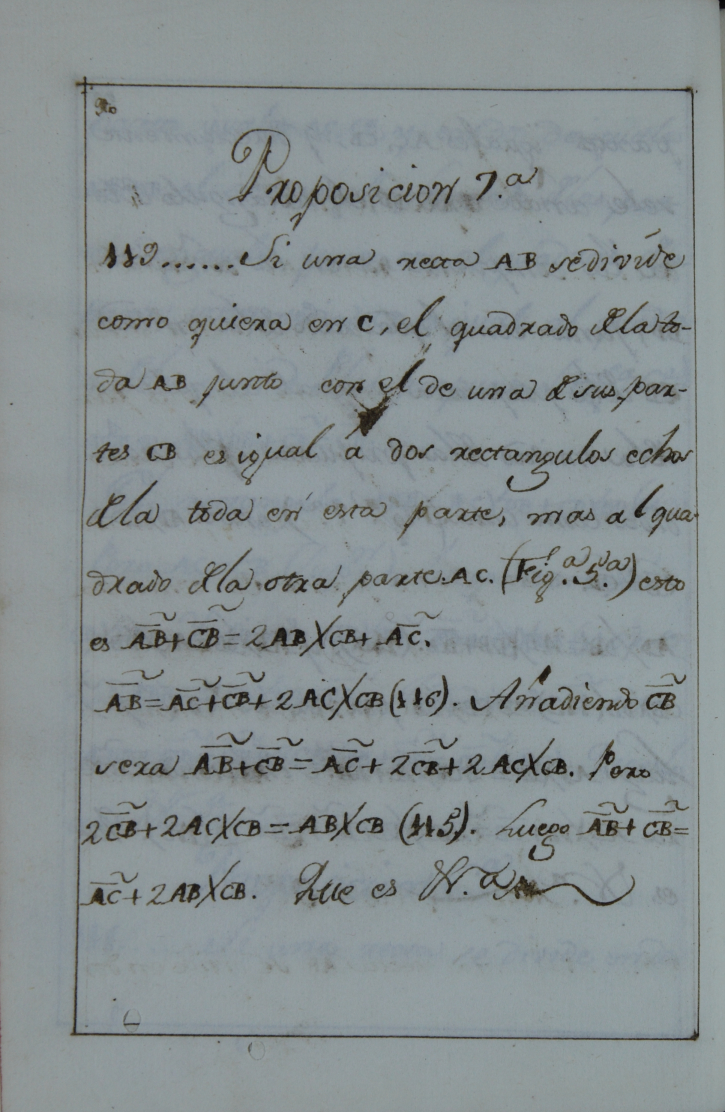 Proposicion 7.ª
119...... Si una recta AB se divide
como quiera en C, el quadrado de la to-
da AB junto con el de una de sus par-
tes CB es igual á dos rectangulos echos
de la toda en esta parte, mas al qua-
drado de la otra parte AC. (Fig.ª 5.ª) esto
es A͞B²+C͞B²=2AB×CB+A͞C².
A͞B²=A͞C²+C͞B²+2AC×CB (116). Añadiendo C͞B²
sera A͞B²+C͞B²=A͞C²+2C͞B²+2AC×CB. Pero
2C͞B²+2AC×CB=AB×CB (115). Luego A͞B²+C͞B²=
A͞C²+2AB×CB. Que es